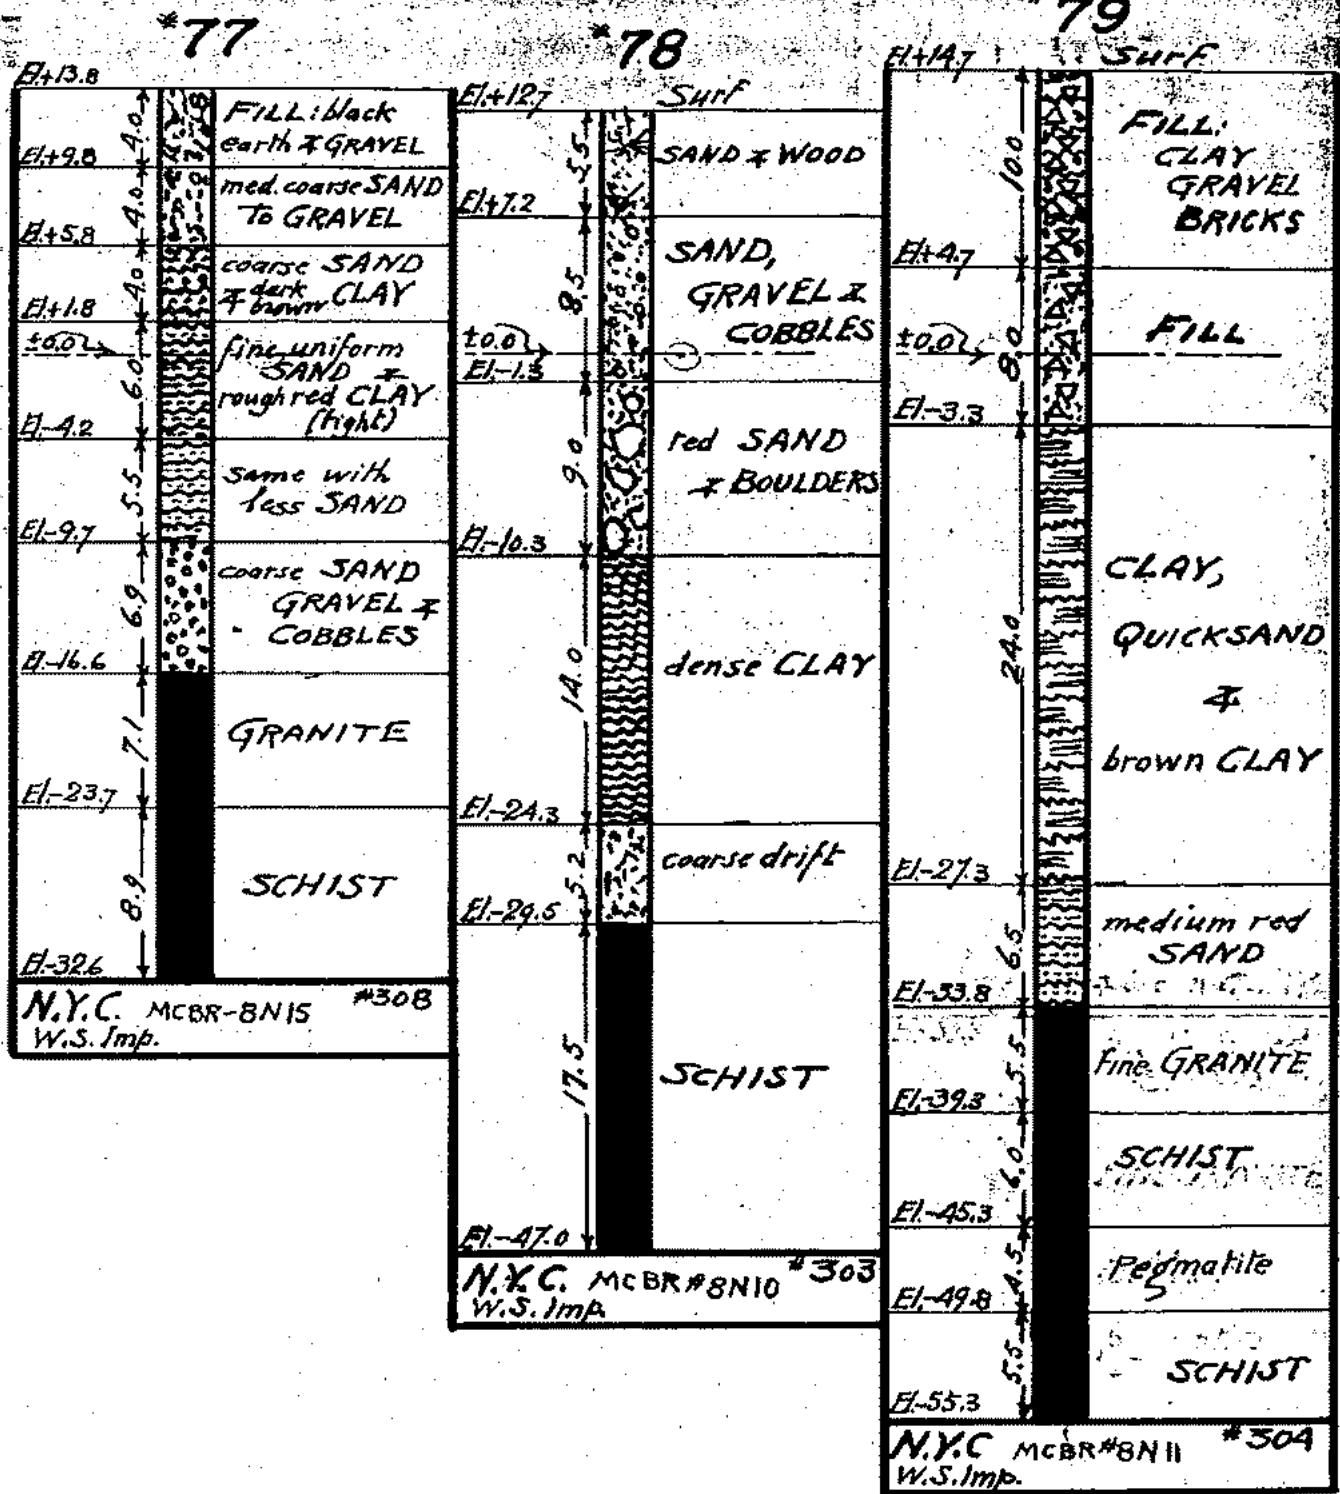 #77
El.+13.8
4.0
FILL: black
earth & GRAVEL
El.+9.8
4.0
med. coarse SAND
To GRAVEL
El.+5.8
4.0
coarse SAND
& dark brown CLAY
El.+1.8
±0.0
6.0
fine uniform
SAND &
rough red CLAY
(tight)
El.-4.2
5.5
same with
less SAND
El.-9.7
6.9
coarse SAND
GRAVEL &
COBBLES
El.-16.6
7.1
GRANITE
El.-23.7
8.9
SCHIST
El.-32.6
N.Y.C. MCBR-8N15 #308
W.S. Imp.
#78
El.+12.7 Surf
5.5
SAND & WOOD
El.+7.2
8.5
SAND,
GRAVEL &
COBBLES
±0.0
El.-1.3
9.0
red SAND
& BOULDERS
El.-10.3
14.0
dense CLAY
El.-24.3
5.2
coarse drift
El.-29.5
17.5
SCHIST
El.-47.0
N.Y.C. MCBR#8N10 #303
W.S. Imp.
#79
El.+14.7 Surf
10.0
FILL:
CLAY
GRAVEL
BRICKS
El.+4.7
8.0
FILL
±0.0
El.-3.3
24.0
CLAY,
QUICKSAND
&
brown CLAY
El.-27.3
6.5
medium red
SAND
El.-33.8
5.5
fine GRANITE
El.-39.3
6.0
SCHIST
El.-45.3
4.5
Pegmatite
El.-49.8
5.5
SCHIST
El.-55.3
N.Y.C MCBR#8N11 #304
W.S. Imp.